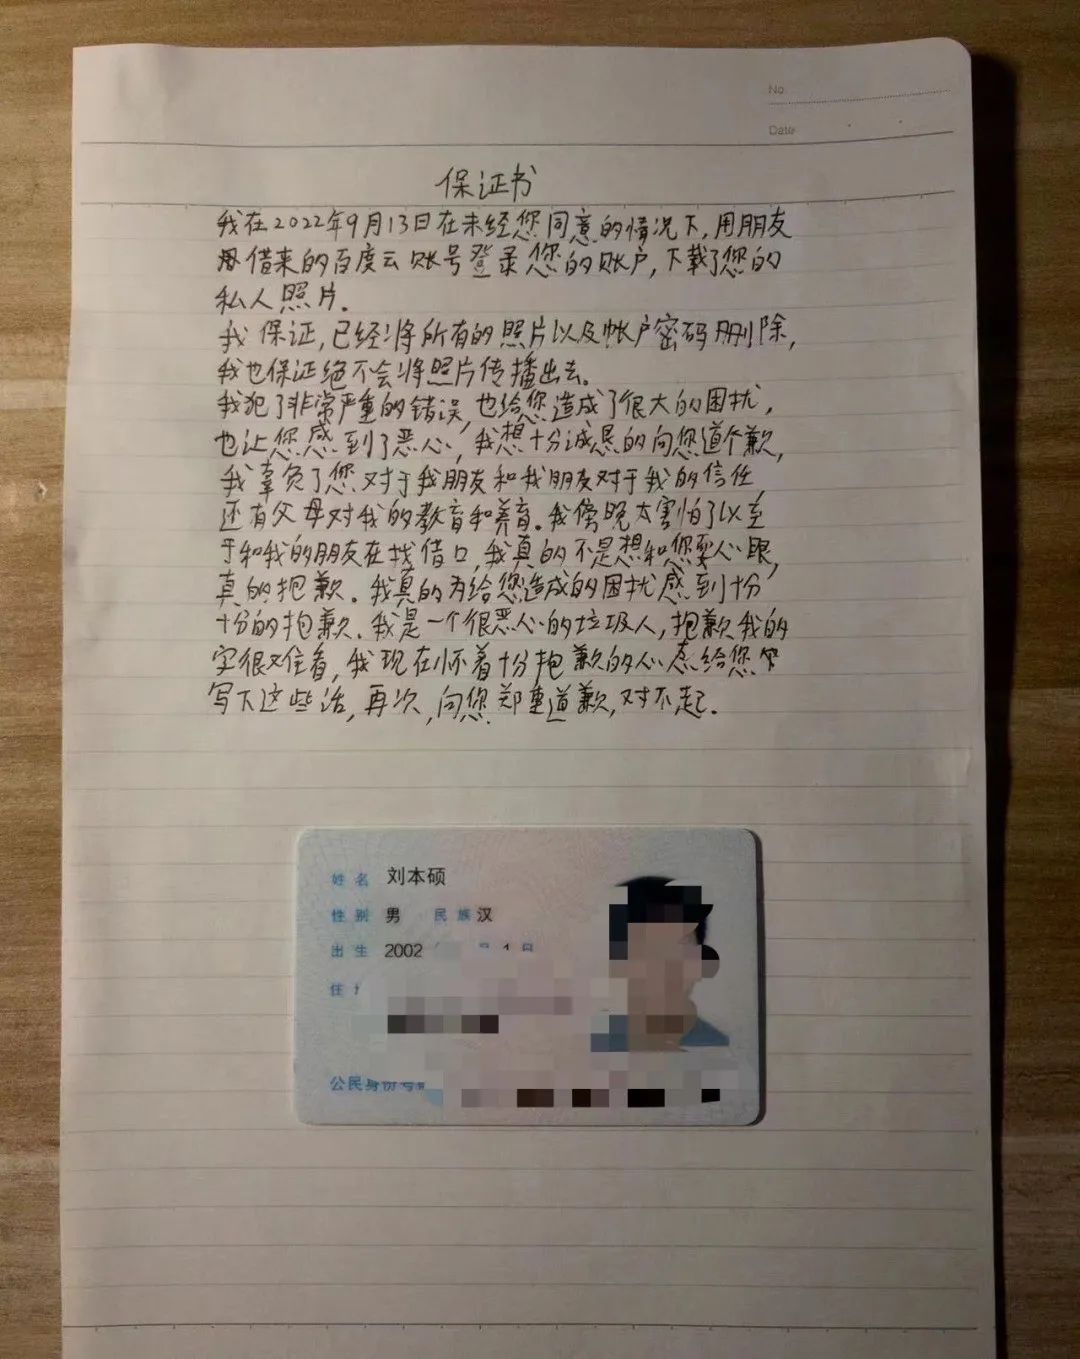 No.
Date
保证书
我在2022年9月13日在未经您同意的情况下,用朋友
借来的百度云账号登录您的账户,下载了您的
私人照片.
我保证,已经将所有的照片以及帐户密码删除,
我也保证绝不会将照片传播出去。
我犯了非常严重的错误,也给您造成了很大的困扰,
也让您感到了恶心,我想十分诚恳的向您道个歉,
我辜负了您对于我朋友和我朋友对于我的信任
还有父母对我的教育和养育。我傍晚太害怕了以至
于和我的朋友在找借口,我真的不是想和您耍心眼,
真的抱歉。我真的为给您造成的困扰感到十分
十分的抱歉.我是一个很恶心的垃圾人,抱歉我的
字很难看,我现在怀着十分抱歉的心态给您
写下这些话,再次,向您郑重道歉,对不起.
姓名 刘本硕
性别 男 民族 汉
出生 2002 1日
住
公民身份号